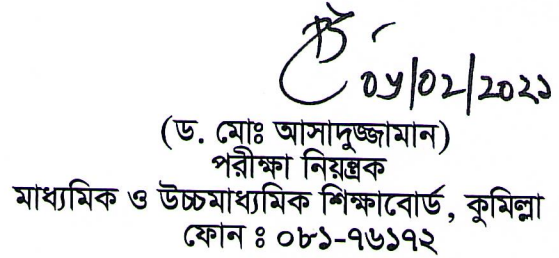 ০৮/০২/২০২১
(ড. মোঃ আসাদুজ্জামান)
পরীক্ষা নিয়ন্ত্রক
মাধ্যমিক ও উচ্চমাধ্যমিক শিক্ষাবোর্ড, কুমিল্লা
ফোন ঃ ০৮১-৭৬১৭২